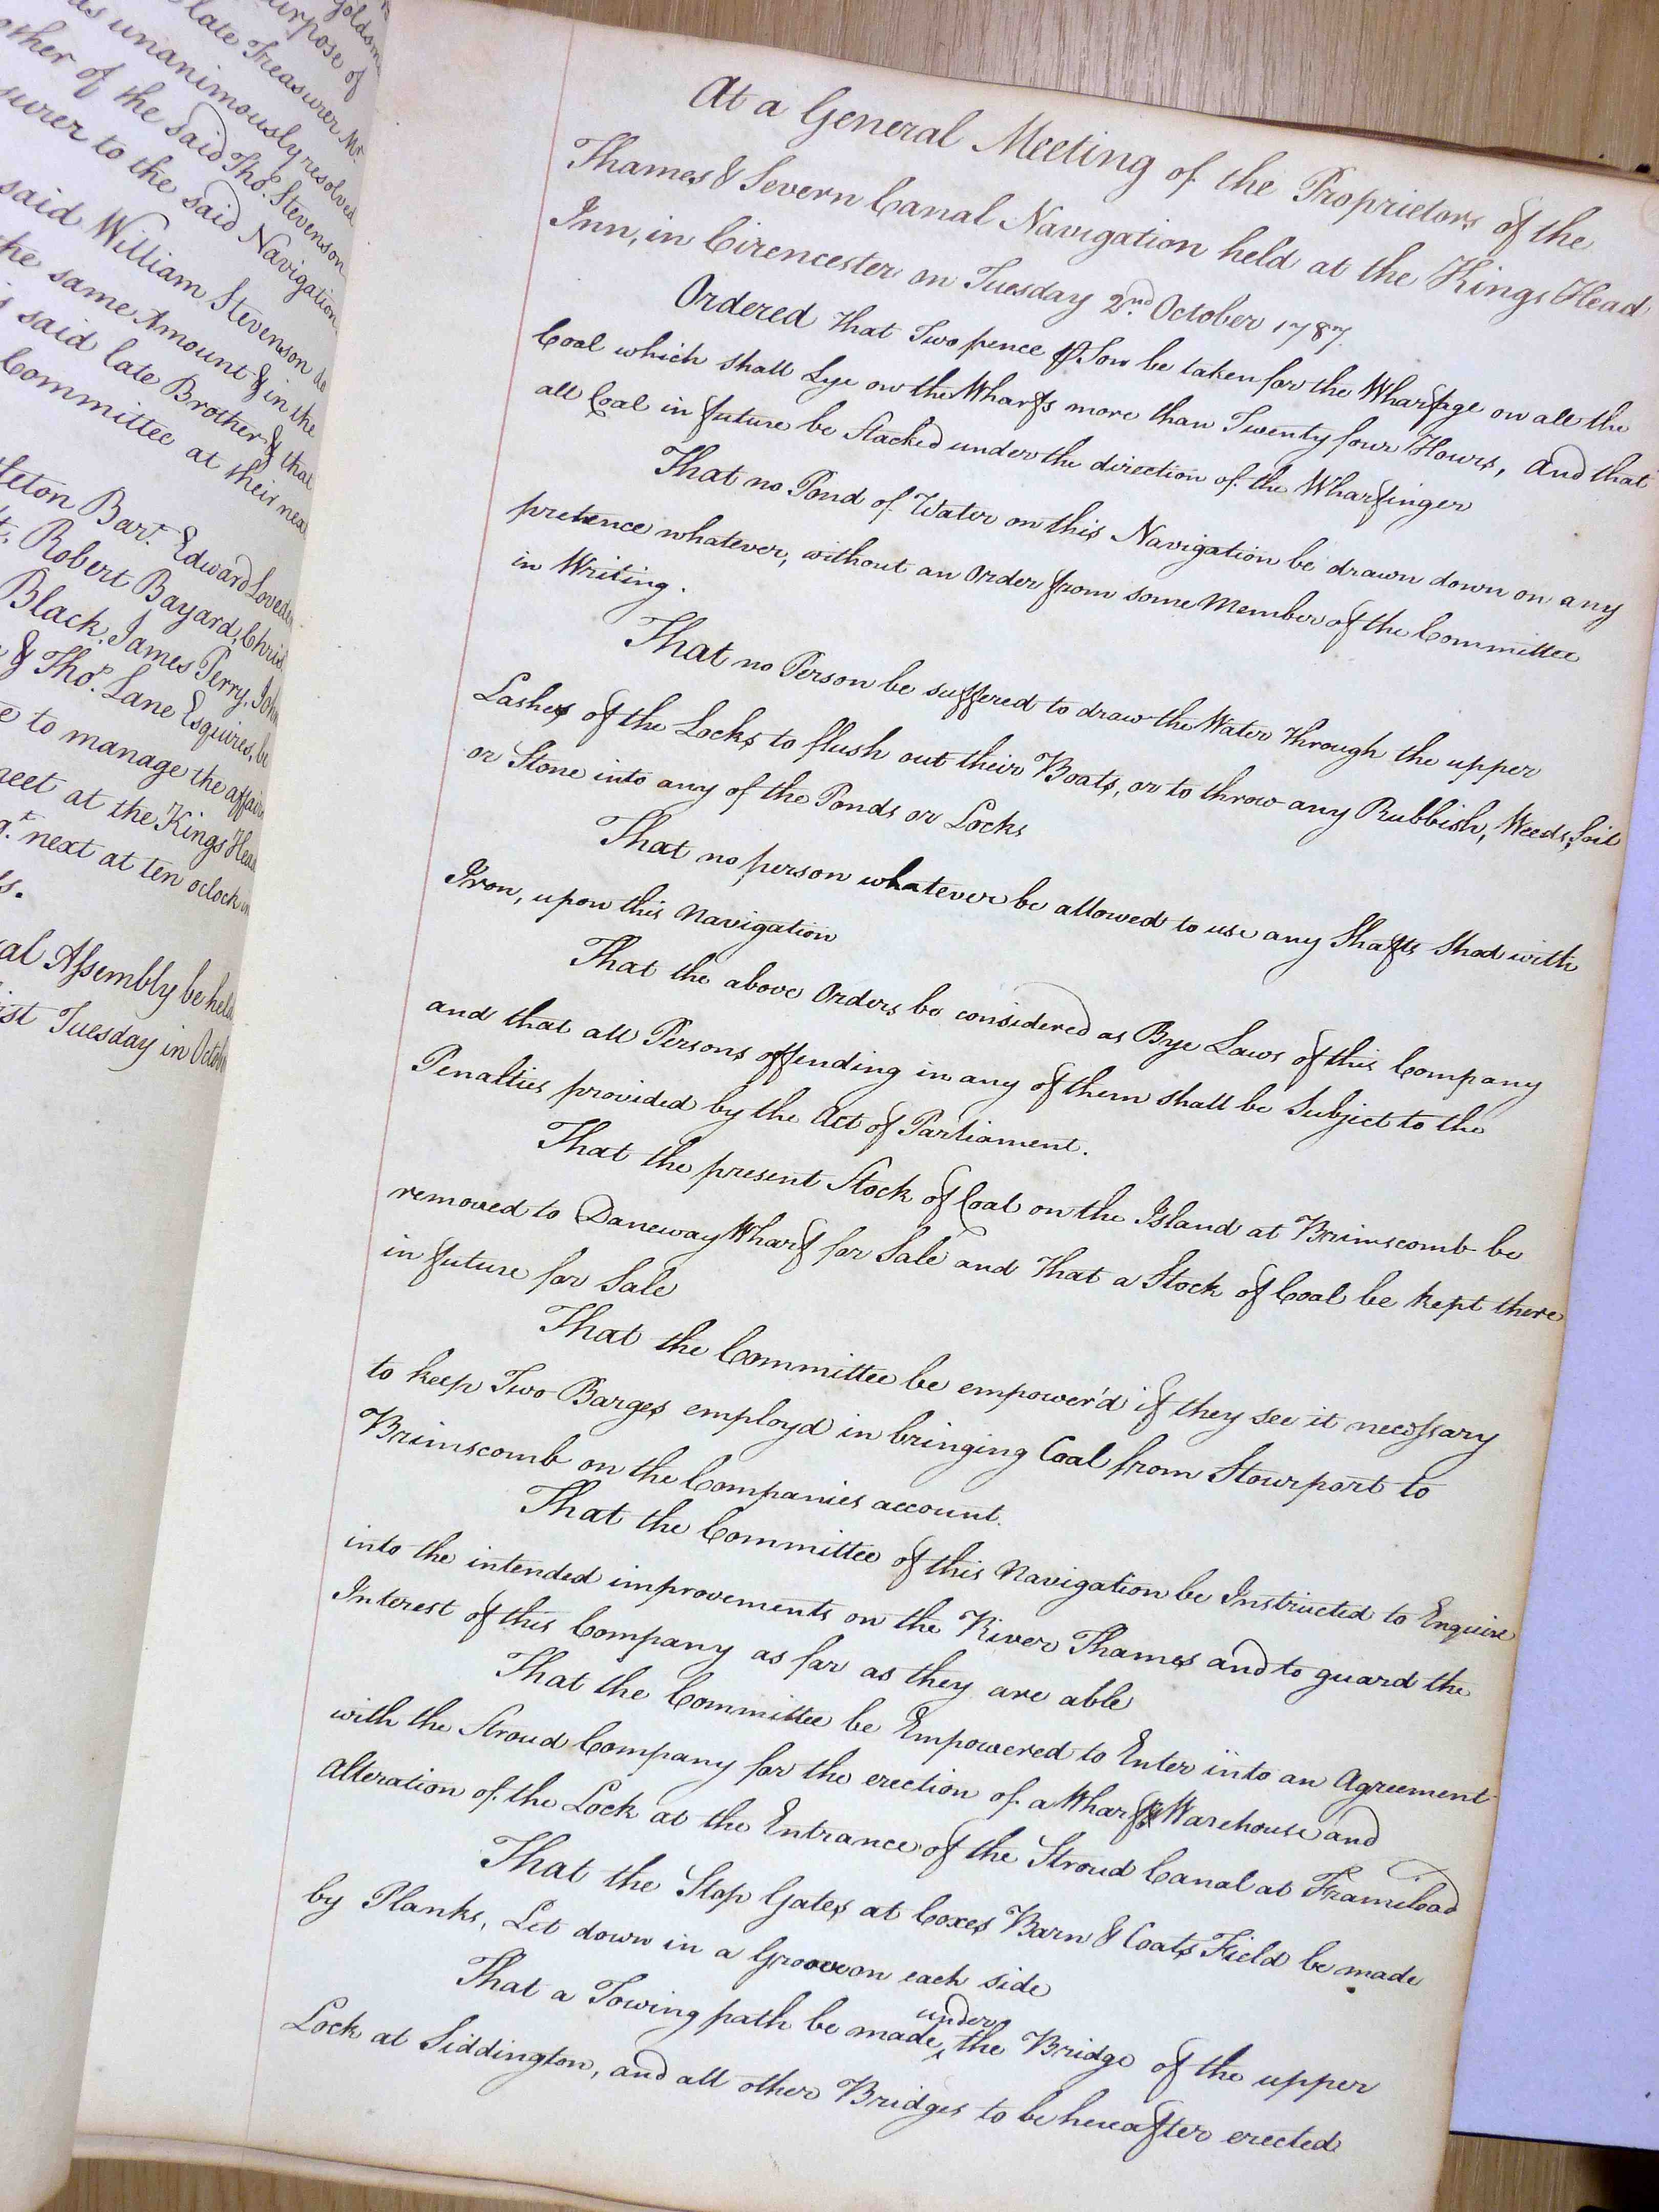 Goldsm
urpose of
late Treasurer Mr.
as unanimously resolved
other of the said Tho.s Stevenson
surer to the said Navigation
said William Stevenson do
the same Amount & in the
said late Brother & that
Committee at their nex
leton Bar.t Edward Loveden
t. Robert Bayard, Chris.
Black, James Perry, John
& Tho.s Lane Esquires, be
e to manage the affairs
neet at the Kings Head
g.t next at ten oclock in
s.
al Assembly be held
ist Tuesday in Octob
At a General Meeting of the Proprietors of the
Thames & Severn Canal Navigation held at the Kings Head
Inn, in Cirencester on Tuesday 2.nd October 1787.
Ordered that Two pence ⅌ Ton be taken for the Wharfage on all the
Coal which shall Lye on the Wharfs more than Twenty four Hours, and that
all Coal in future be Stacked under the direction of the Wharfinger
That no Pond of Water on this Navigation be drawn down on any
pretence whatever, without an Order from some Member of the Committee
in Writing.
That no Person be suffered to draw the Water through the upper
Lashes of the Locks to flush out their Boats, or to throw any Rubbish, Weeds, Soil
or Stone into any of the Ponds or Locks
That no person whatever be allowed to use any Shafts Shod with
Iron, upon this Navigation
That the above Orders be considered as Bye Laws of this Company
and that all Persons offending in any of them shall be Subject to the
Penalties provided by the Act of Parliament.
That the present Stock of Coal on the Island at Brimscomb be
removed to Daneway Wharf for Sale and that a Stock of Coal be kept there
in future for Sale
That the Committee be empower'd if they see it necessary
to keep Two Barges employd in bringing Coal from Stourport to
Brimscomb on the Companies account.
That the Committee of this Navigation be Instructed to Enquire
into the intended improvements on the River Thames and to guard the
Interest of this Company as far as they are able
That the Committee be Empowered to Enter into an Agreement
with the Stroud Company for the erection of a Wharf & Warehouse and
Alteration of the Lock at the Entrance of the Stroud Canal at Frameload
That the Stop Gates at Coxes Barn & Coats Field be made
by Planks, Let down in a Groove on each side
under
That a Towing path be made ‸ the Bridge of the upper
Lock at Siddington, and all other Bridges to be hereafter erected